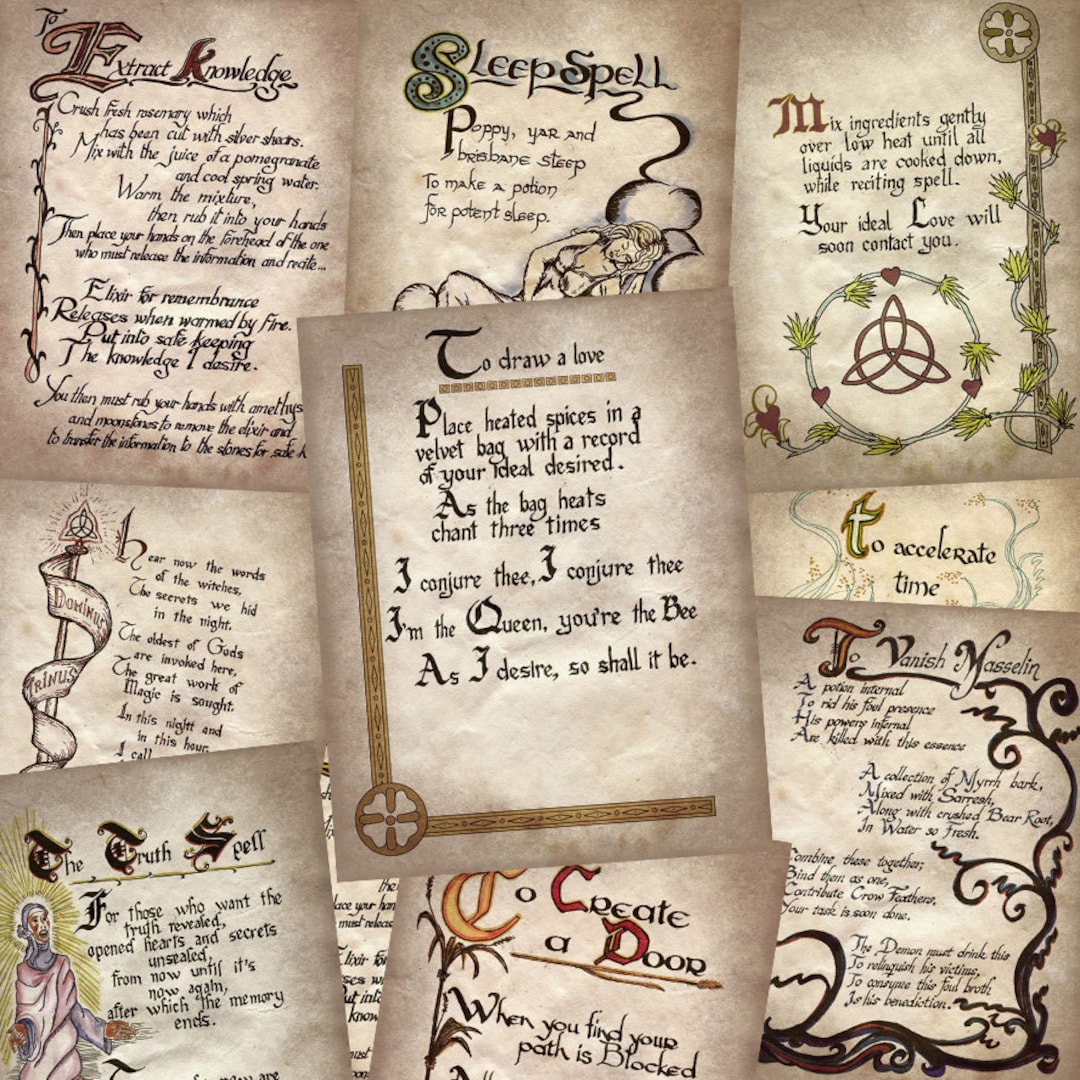 To
Extract Knowledge
Crush fresh rosemary which
has been cut with silver shears.
Mix with the juice of a pomegranate
and cool spring water.
Warm the mixture,
then rub it into your hands
Then place your hands on the forehead of the one
who must release the information and recite...
Elixir for remembrance
Releases when warmed by fire.
Put into safe keeping
The knowledge I desire.
You then must rub your hands with amethys
and moonstones to remove the elixir and
to transfer the information to the stones for safe k
Sleep Spell
Poppy, yar and
brisbane steep
To make a potion
for potent sleep.
Mix ingredients gently
over low heat until all
liquids are cooked down,
while reciting spell.
Your ideal Love will
soon contact you.
To draw a love
Place heated spices in a
velvet bag with a record
of your ideal desired.
As the bag heats
chant three times
I conjure thee, I conjure thee
I'm the Queen, you're the Bee
As I desire, so shall it be.
Dominus
Trinus
hear now the words
of the witches,
The secrets we hid
in the night,
The oldest of Gods
are invoked here,
The great work of
Magic is sought.
In this night and
in this hour,
I call
to accelerate
time
To Vanish Masselin
A potion internal
To rid his foul presence
His powers infernal
Are killed with this essence
A collection of Myrrh bark,
Mixed with Sarresh,
Along with crushed Bear Root,
In Water so Fresh.
Combine, these together,
Bind them as one,
Contribute Crow Feathers,
Your task is soon done.
The Demon must drink this
To relinquish his victims,
To consume this foul broth
Is his benediction.
The Truth Spell
For those who want the
truth revealed,
opened hearts and secrets
unsealed,
from now until it's
now again,
after which the memory
ends.
are
the
lace your hand
must release
Elixir for
ses w
ut into
know
must
To Create
a Door
When you find your
path is Blocked